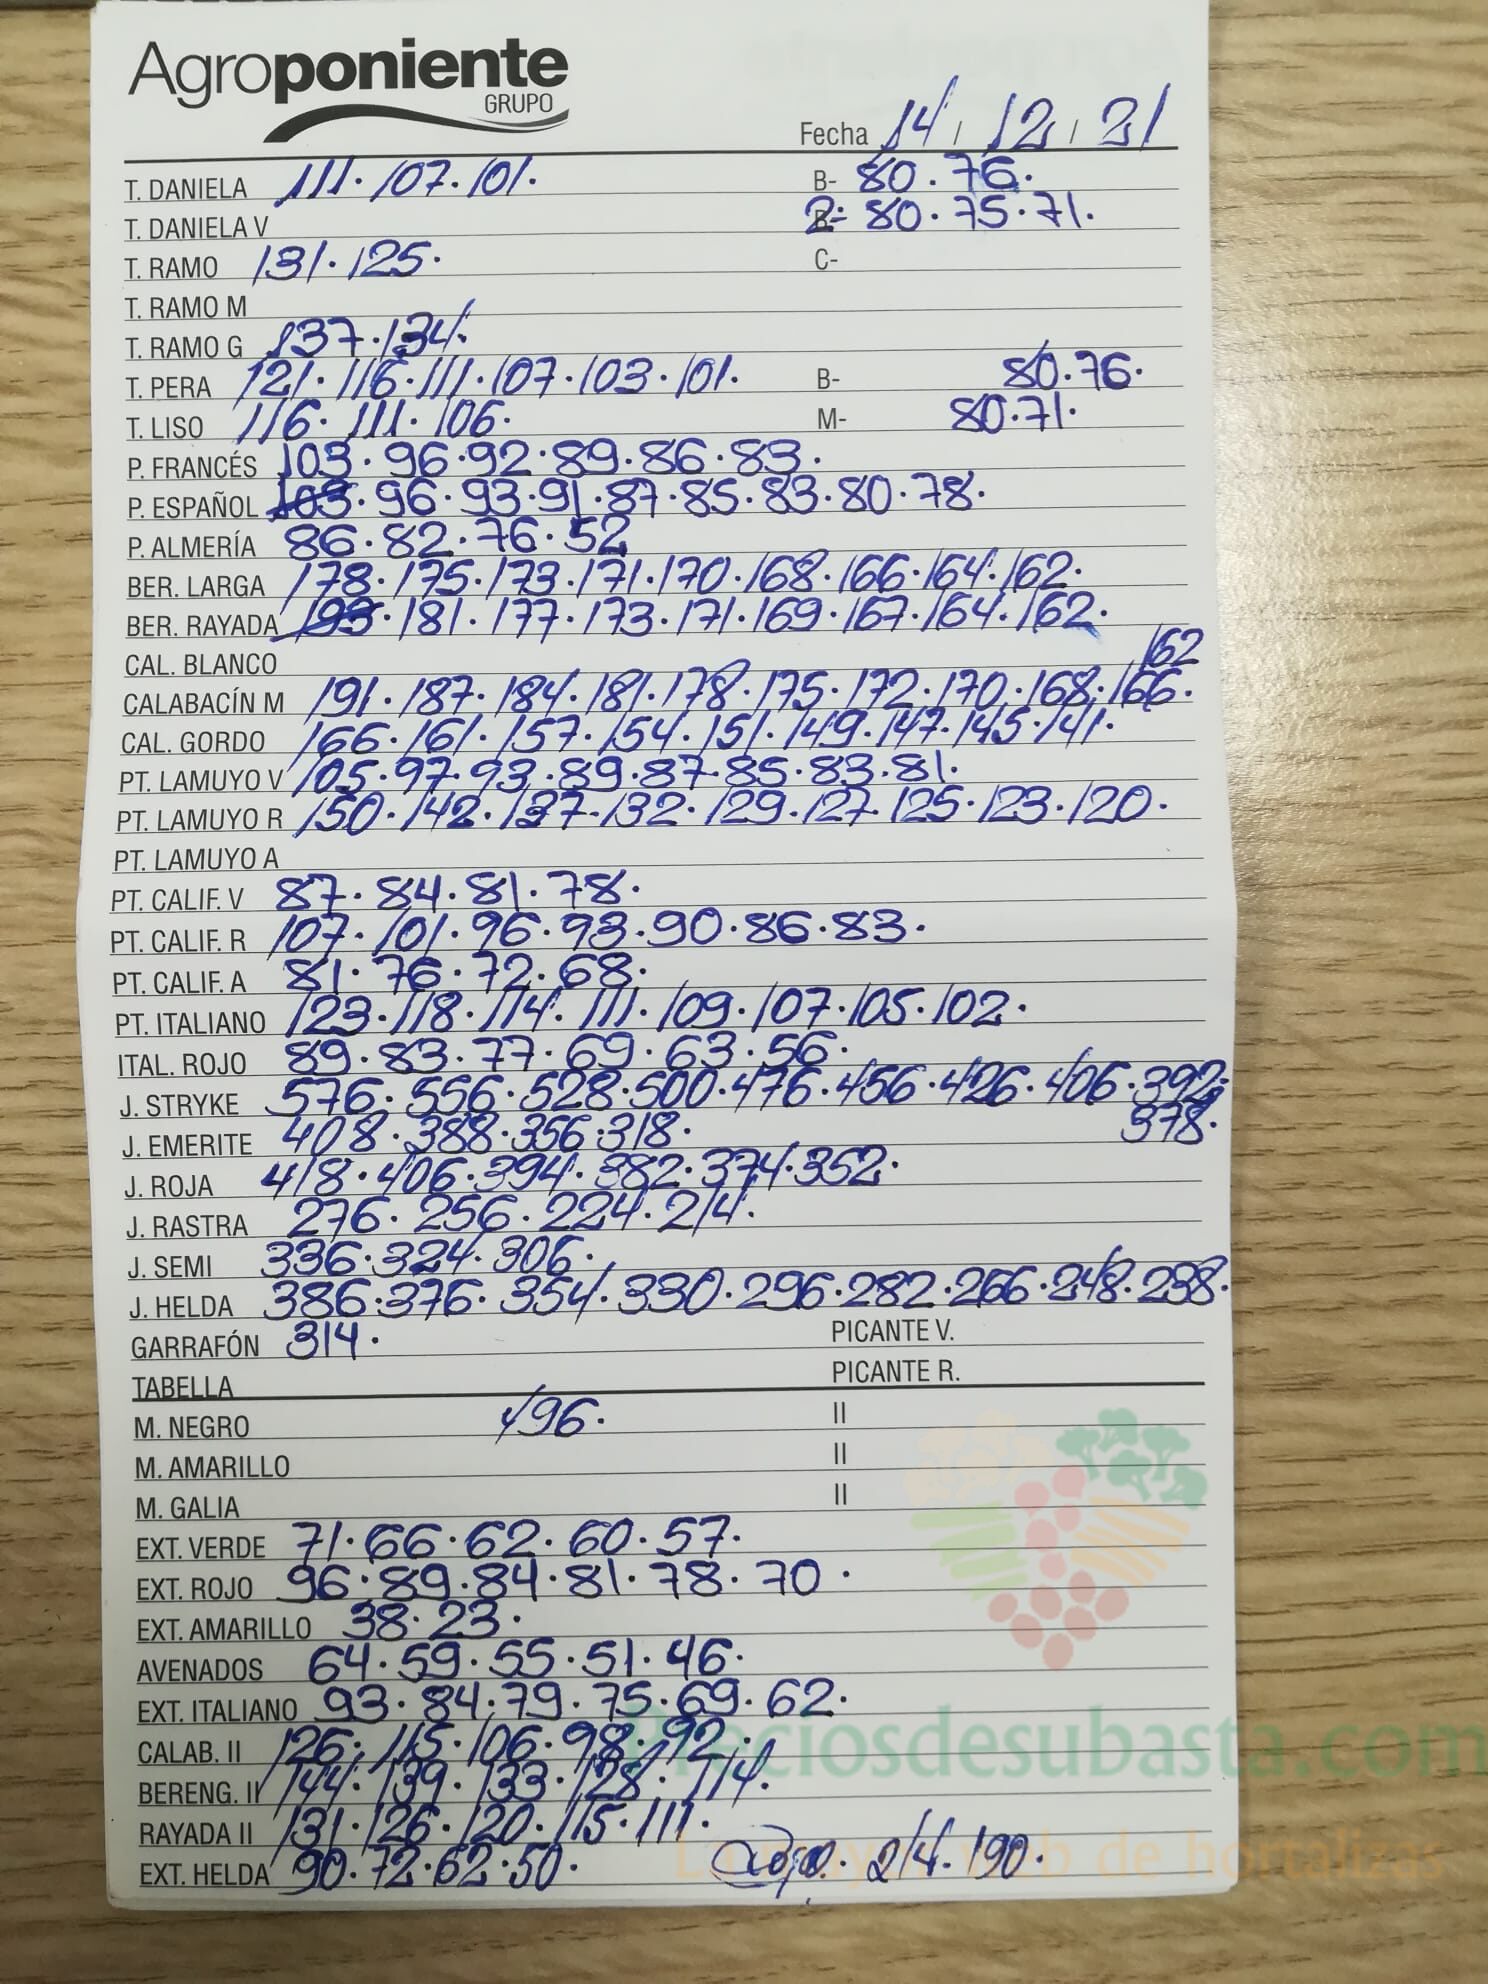 Agroponiente
GRUPO
Fecha 14 / 12 / 21
T. DANIELA 111. 107. 101. B- 80. 76.
T. DANIELA V 2- 80. 75. 71.
T. RAMO 131. 125. C-
T. RAMO M
T. RAMO G 137. 134.
T. PERA 121. 116. 111. 107. 103. 101. B- 80. 76.
T. LISO 116. 111. 106. M- 80. 71.
P. FRANCÉS 103. 96. 92. 89. 86. 83.
P. ESPAÑOL 103. 96. 93. 91. 87. 85. 83. 80. 78.
P. ALMERÍA 86. 82. 76. 52
BER. LARGA 178. 175. 173. 171. 170. 168. 166. 164. 162.
BER. RAYADA 193. 181. 177. 173. 171. 169. 167. 164. 162.
CAL. BLANCO 162
CALABACÍN M 191. 187. 184. 181. 178. 175. 172. 170. 168. 166.
CAL. GORDO 166. 161. 157. 154. 151. 149. 147. 145. 141.
PT. LAMUYO V 105. 97. 93. 89. 87. 85. 83. 81.
PT. LAMUYO R 150. 142. 137. 132. 129. 127. 125. 123. 120.
PT. LAMUYO A
PT. CALIF. V 87. 84. 81. 78.
PT. CALIF. R 107. 101. 96. 93. 90. 86. 83.
PT. CALIF. A 81. 76. 72. 68.
PT. ITALIANO 123. 118. 114. 111. 109. 107. 105. 102.
ITAL. ROJO 89. 83. 77. 69. 63. 56.
J. STRYKE 576. 556. 528. 500. 476. 456. 426. 406. 392.
J. EMERITE 408. 388. 356. 318. 378.
J. ROJA 418. 406. 394. 382. 374. 352.
J. RASTRA 276. 256. 224. 214.
J. SEMI 336. 324. 306.
J. HELDA 386. 376. 354. 330. 296. 282. 266. 248. 238.
GARRAFÓN 314. PICANTE V.
TABELLA PICANTE R.
M. NEGRO 496. II
M. AMARILLO II
M. GALIA II
EXT. VERDE 71. 66. 62. 60. 57.
EXT. ROJO 96. 89. 84. 81. 78. 70.
EXT. AMARILLO 38. 23.
AVENADOS 64. 59. 55. 51. 46.
EXT. ITALIANO 93. 84. 79. 75. 69. 62.
Preciosdesubasta.com
CALAB. II 126. 115. 106. 98. 92.
BERENG. II 144. 139. 133. 128. 114.
RAYADA II 131. 126. 120. 115. 111.
EXT. HELDA 90. 72. 62. 50. 214. 190.
La mayor web de hortalizas